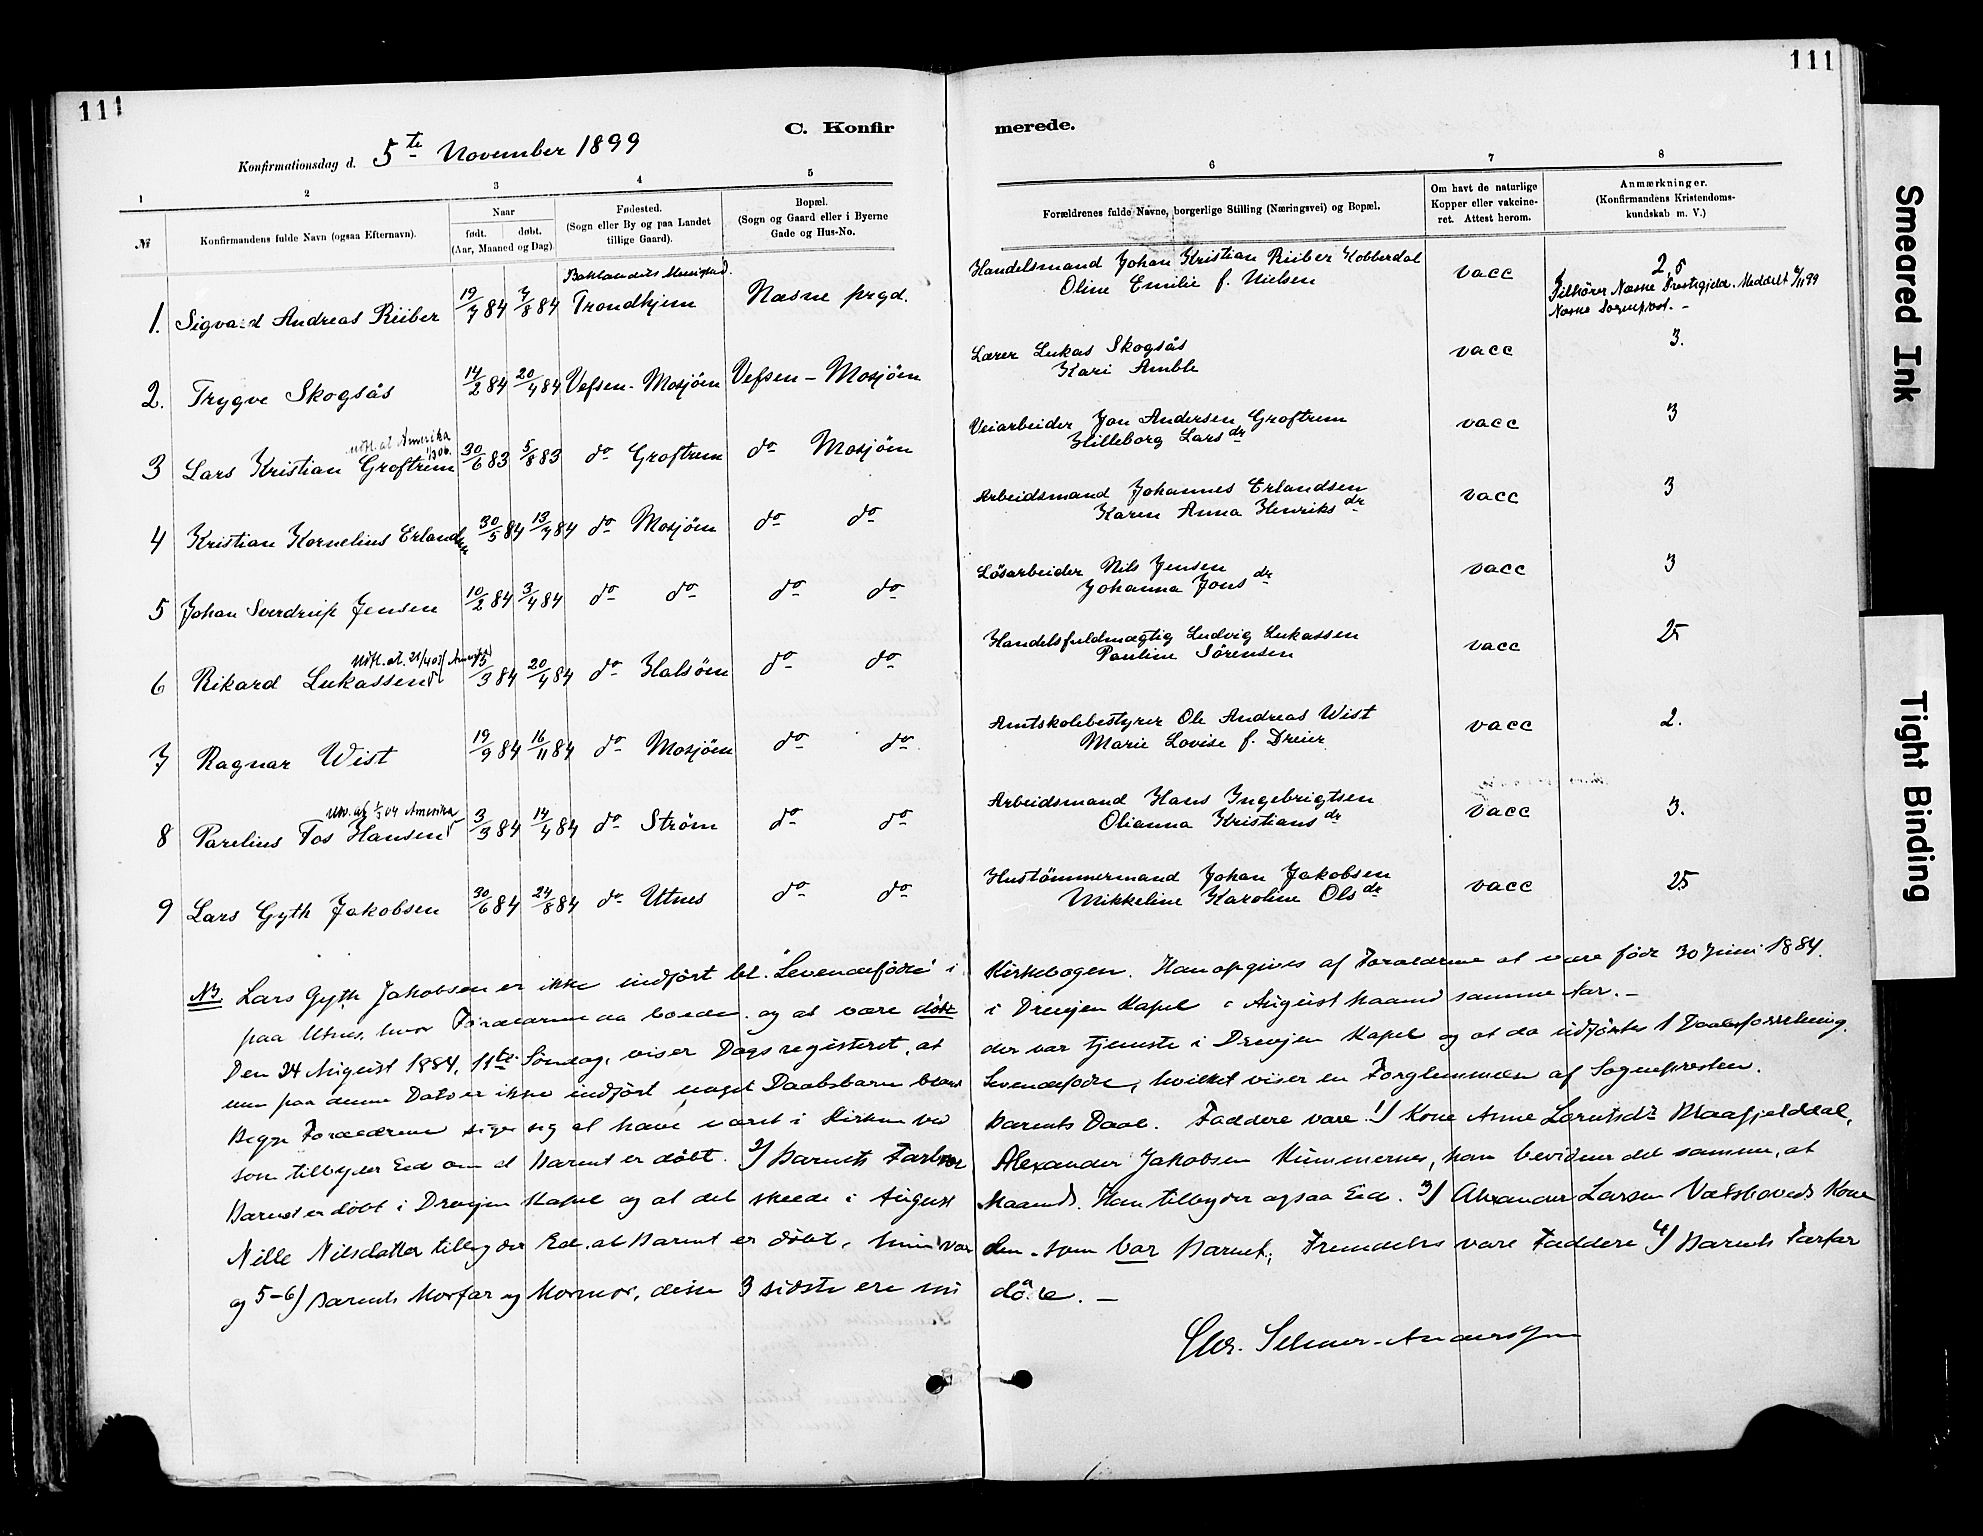 111
111
C. Konfir
merede.
Konfirmationsdag d. 5te November 1899
1 2 3 4 5
6 7 8
№
Konfirmandens fulde Navn (ogsaa Efternavn).
Naar
født. døbt.
(Aar, Maaned og Dag)
Fødested.
(Sogn eller By og paa Landet
tillige Gaard).
Bopæl.
(Sogn og Gaard eller i Byerne
Gade og Hus-No.
Forældrenes fulde Navne, borgerlige Stilling (Næringsvei) og Bopæl.
Om havt de naturlige
Kopper eller vakcine-
ret. Attest herom.
Anmærkninger.
(Konfirmandens Kristendoms-
kundskab m. V.)
Baklandets Menighed.
1. Sigvard Andreas Riiber 19/7 84 7/8 84 Trondhjem Næsne prgd.
Handelsmand Johan Kristian Riiber Kobberdal
Oline Emilie f. Nielsen
vacc
2,5
Tilhører Næsne Prestegjeld. Meddelt 6/11 99
Næsne Sogneprest. -
2. Trygve Skogsås 14/2 84 20/4 84 Vefsen - Mosjøen Vefsen - Mosjøen
Lærer Lukas Skogsås
Kari Amble
vacc 3.
utfl. at Amerika
1/3 06.
3 Lars Kristian Groftrem 30/6 83 5/8 83 do Groftrem do Mosjøen
Veiarbeider Jon Andersen Groftrem
Hilleborg Larsdr
vacc 3
4 Kristian Kornelius Erlandsen 30/5 84 13/7 84 do Mosjøen do do
Arbeidsmand Johannes Erlandsen
Karen Anna Henriksdr
vacc 3
5 Johan Sverdrup Jensen 10/2 84 3/4 84 do do do do
Løsarbeider Nils Jensen
Johanna Jonsdr
vacc 3
Utfl. at. 21/4 05
6 Rikard Lukassen 5/3 84 20/4 84 do Halsøen do do
Handelsfuldmægtig Ludvig Lukassen
Pauline Sørensen
vacc 25
7 Ragnar Wist 19/9 84 16/11 84 do Mosjøen do do
Amtskolebestyrer Ole Andreas Wist
Marie Lovise f. Dreier
vacc 2.
Utv. af 1/3 04 Amerika
8 Parelius Fos Hansen 3/3 84 14/4 84 do Strøm do do
Arbeidsmand Hans Ingebrigtsen
Olianna Kristiansdr
vacc 3.
9 Lars Gyth Jakobsen 30/6 84 24/8 84 do Utnes do do
Hustømmermand Johan Jakobsen
Mikkeline Karoline Olsdr
vacc 25
NB. Lars Gyth Jakobsen er ikke indført bl. "Levendefødte" i Kirkebogen. Han opgives af Forældrene at være født 30 Juni 1884.
paa Utnes, hvor Forældrene da boede og at være døbt i Drevjen Kapel i August Maaned samme Aar. -
Den 24 August 1884, 11te Søndag, viser Dagsregisteret, at der var tjeneste i Drevjen Kapel og at da udførtes 1 Daabsforretning.
men paa denne Dato er ikke indført noget Daabsbarn blandt Levendefødte, hvilket viser en Forglemmelse af Sognepresten.
Begge Forældrene siger sig at have været i Kirken ved Barnets Daab. Faddere vare 1) Kone Anne Larntsdr Blaafjelddal,
som tilbyder Ed om at Barnet er døbt. 2) Barnets Farbror Alexander Jakobsen Kummernes, han bevidner det samme, at
Barnet er døbt i Drevjen Kapel og at det skede i August Maaned. Han tilbyder ogsaa Eed. 3) Alexander Larsen Vatshoveds Kone
Nille Nilsdatter tilbyder Ed, at Barnet er døbt, hun var den som bar Barnet, Fremdeles vare Faddere 4) Barnets Farfar
og 5-6) Barnets Morfar og Mormor, disse 3 sidste ere nu døde. -
Chr. Selmer-Anderssen
Smeared Ink
Tight Binding